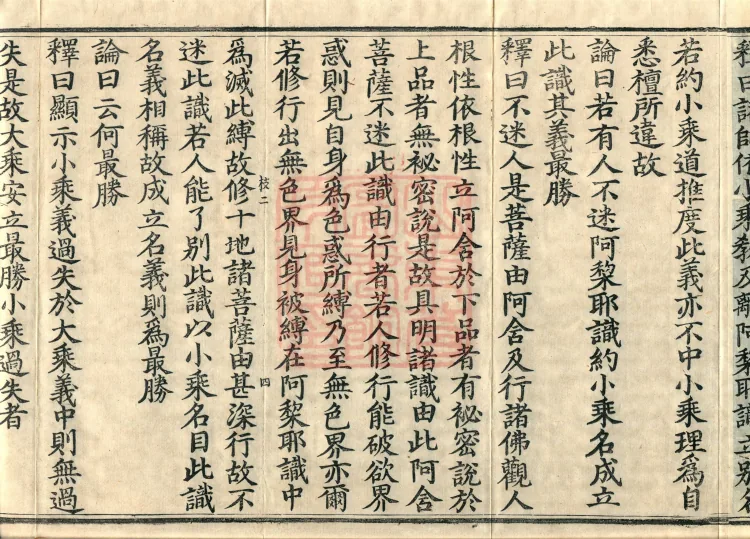 釋曰諸師依小乘教及離阿黎耶識立別名
若約小乘道推度此義亦不中小乘理爲自
悉檀所違故
論曰若有人不迷阿黎耶識約小乘名成立
此識其義最勝
釋曰不迷人是菩薩由阿含及行諸佛觀人
根性依根性立阿含於下品者有祕密說於
上品者無祕密說是故具明諸識由此阿含
菩薩不迷此識由行者若人修行能破欲界
惑則見自身爲色惑所縛乃至無色界亦爾
若修行出無色界見身被縛在阿黎耶識中
枝二 四
爲滅此縛故修十地諸菩薩由甚深行故不
迷此識若人能了別此識以小乘名目此識
名義相稱故成立名義則爲最勝
論曰云何最勝
釋曰顯示小乘義過失於大乘義中則無過
失是故大乘安立最勝小乘過失者